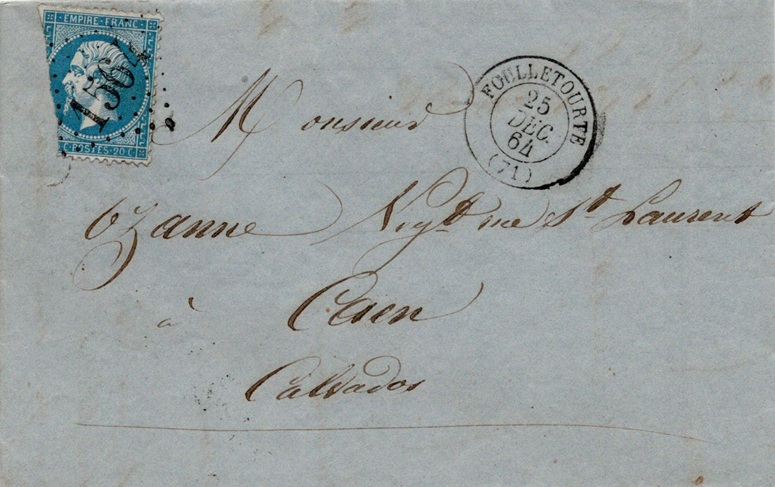 EMPIRE FRANC
POSTES 20 C
FOULLETOURTE
25
DÉC.
64
(71)
Monsieur
Ozanne Negt rue St Laurent
à
Caen
Calvados